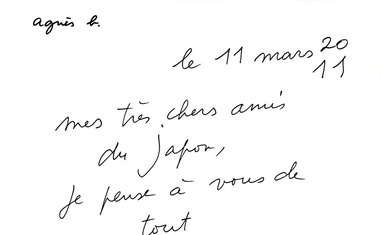 agnès b.
le 11 mars 20
11
mes très chers amis
du Japon,
je pense à vous de
tout